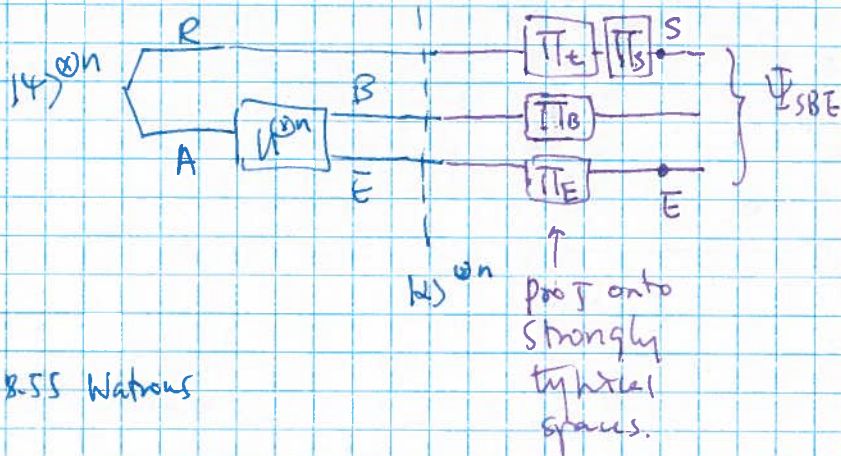 R
|ψ⟩^{⊗n}
A
U^{⊗n}
B
E
Π_t
Π_s
S
Π_B
Π_E
E
Ψ_{SBE}
|α⟩^{⊗n}
proj onto
strongly
typical
spaces.
8.55 Watrous